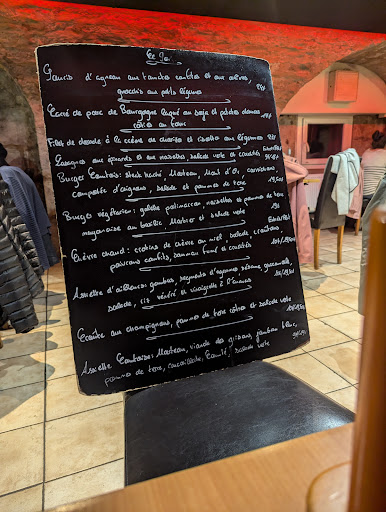 Le Soir
Souris d'agneau aux tomates confites et aux olives,
gnocchis aux petits légumes
Carré de porc de Bourgogne laqué au soja et patates douces
rôties au four
Filet de dorade à la crème de chorizo et risotto aux légumes
Lasagnes aux épinards et aux noisettes, salade verte et crudités
Burger Comtois: Steak haché, Morteau, Mont d'Or, cornichons,
compotée d'oignons, salade et pommes de terre
Burger végétarien: galette, noisettes et pommes de terre
mayonnaise au basilic, et salade verte
Chèvre chaud: crottins de chèvre au miel, salade, croûtons
poivrons confits, jambon fumé et crudités
Assiette d'ailleurs: gambas, segments d'agrumes, sésame, guacamole,
salade, riz vénéré et vinaigrette à l'ananas
Croûte aux champignons, pommes de terre rôties et salade verte
Assiette Comtoise: Morteau, viande des grisons, jambon blanc,
pommes de terre, cancoillotte, Comté, salade verte